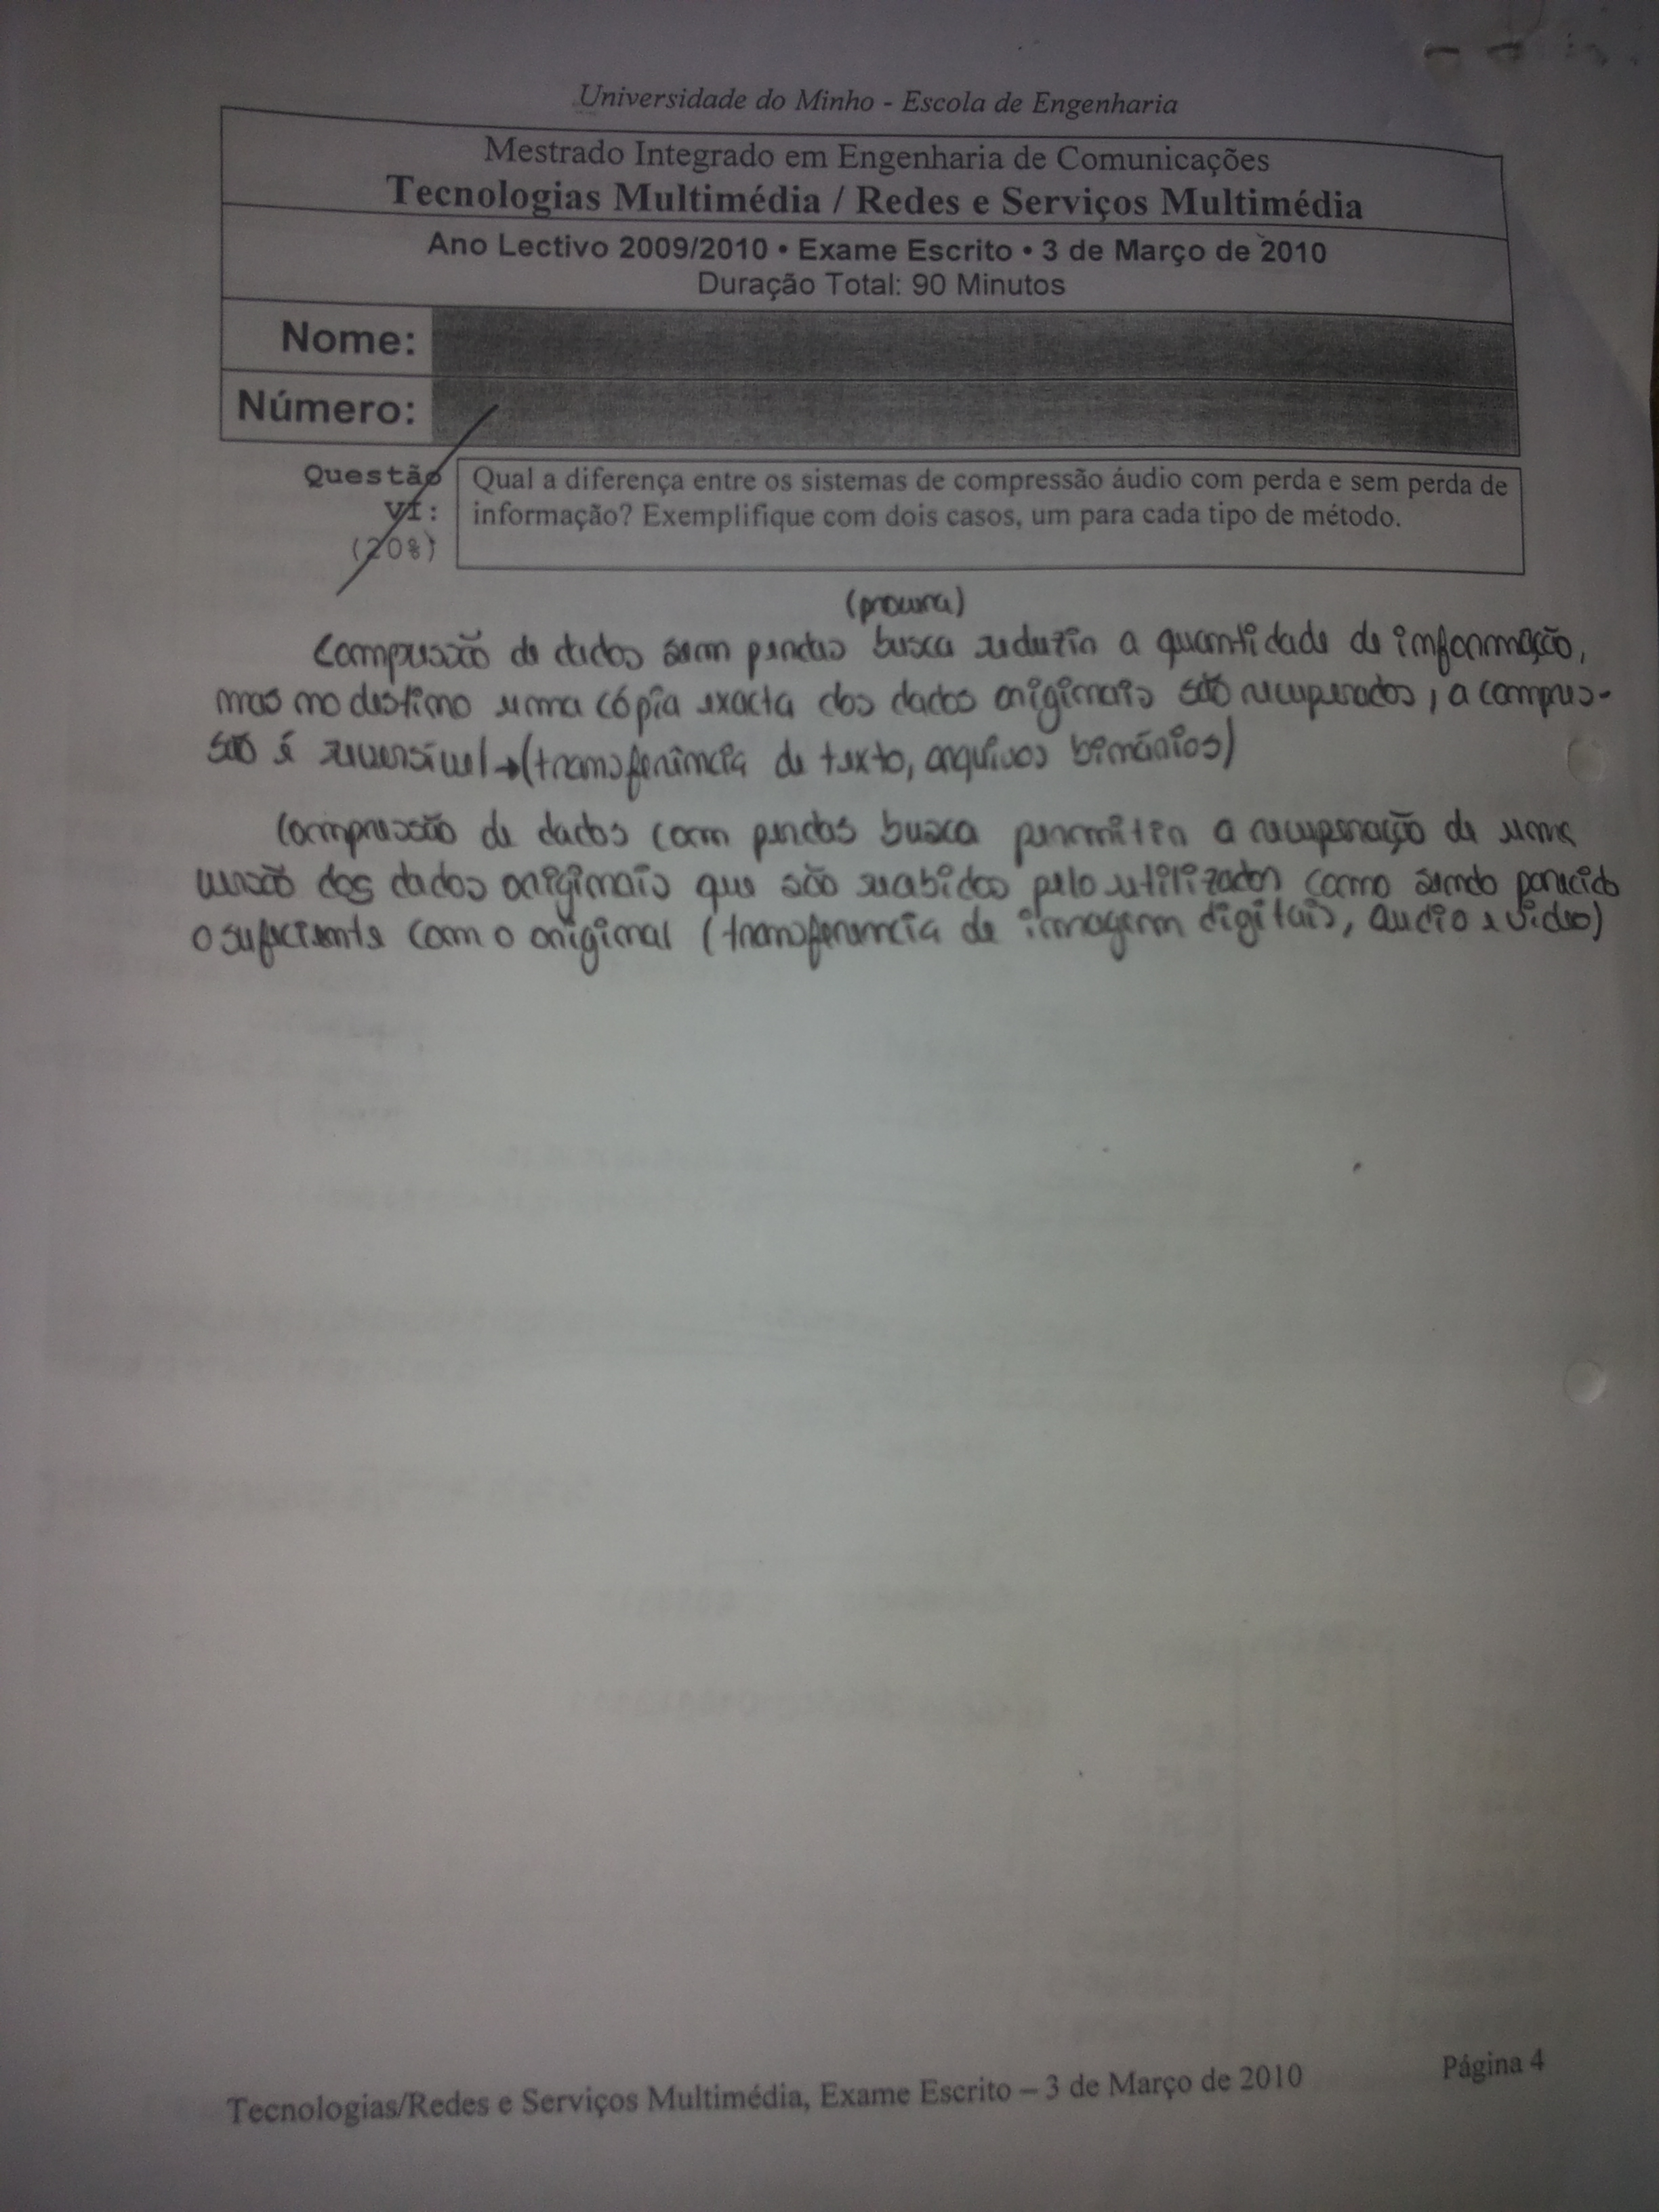 Universidade do Minho - Escola de Engenharia
Mestrado Integrado em Engenharia de Comunicações
Tecnologias Multimédia / Redes e Serviços Multimédia
Ano Lectivo 2009/2010 • Exame Escrito • 3 de Março de 2010
Duração Total: 90 Minutos
Nome:
Número:
Questão VI: (20%)
Qual a diferença entre os sistemas de compressão áudio com perda e sem perda de
informação? Exemplifique com dois casos, um para cada tipo de método.
(procura)
Compressão de dados sem perdas busca reduzir a quantidade de informação,
mas no destino uma cópia exacta dos dados originais são recuperados, a compres-
são é reversível → (transferência de texto, arquivos binários)
Compressão de dados com perdas busca permitir a recuperação de uma
versão dos dados originais que são recebidos pelo utilizador como sendo parecido
o suficiente com o original (transferencia de imagem digitais, audio e video)
Tecnologias/Redes e Serviços Multimédia, Exame Escrito – 3 de Março de 2010
Página 4